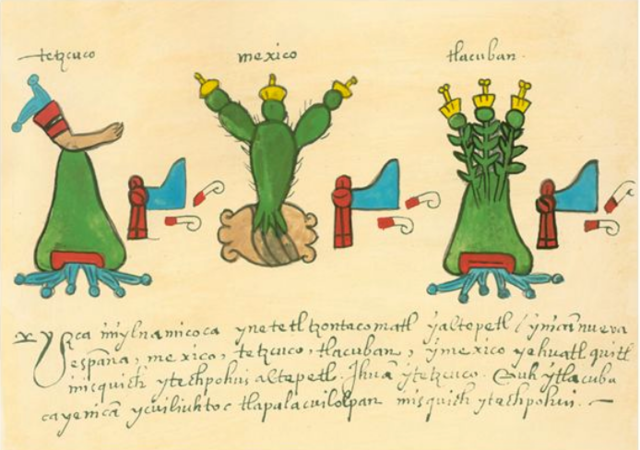 tetzcuco
mexico
tlacuban
Yzca ynylnamicoca ynetetl tzontecomatl yaltepetl ynican nueva
España, mexico, tetzcuco, tlacuban, ymexico yehuatl quitl
misquich ytechpohui altepetl. Ihuā ytetzcuco. Çuh ytlacuba
ca yenicā ycuiliuhtoc tlapalacuilolpan misquich ytechpohui.